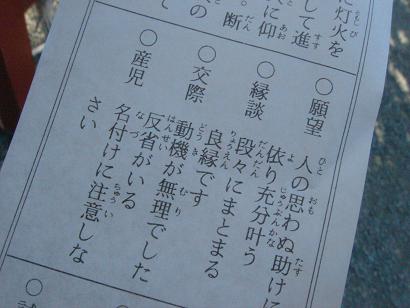 に灯火を
して進
に仰
。断
の
て
○願望 人の思わぬ助けに
依り充分叶う
○縁談 段々にまとまる
良縁です
○交際 動機が無理でした
反省がいる
○産児 名付けに注意しな
さい
○
○